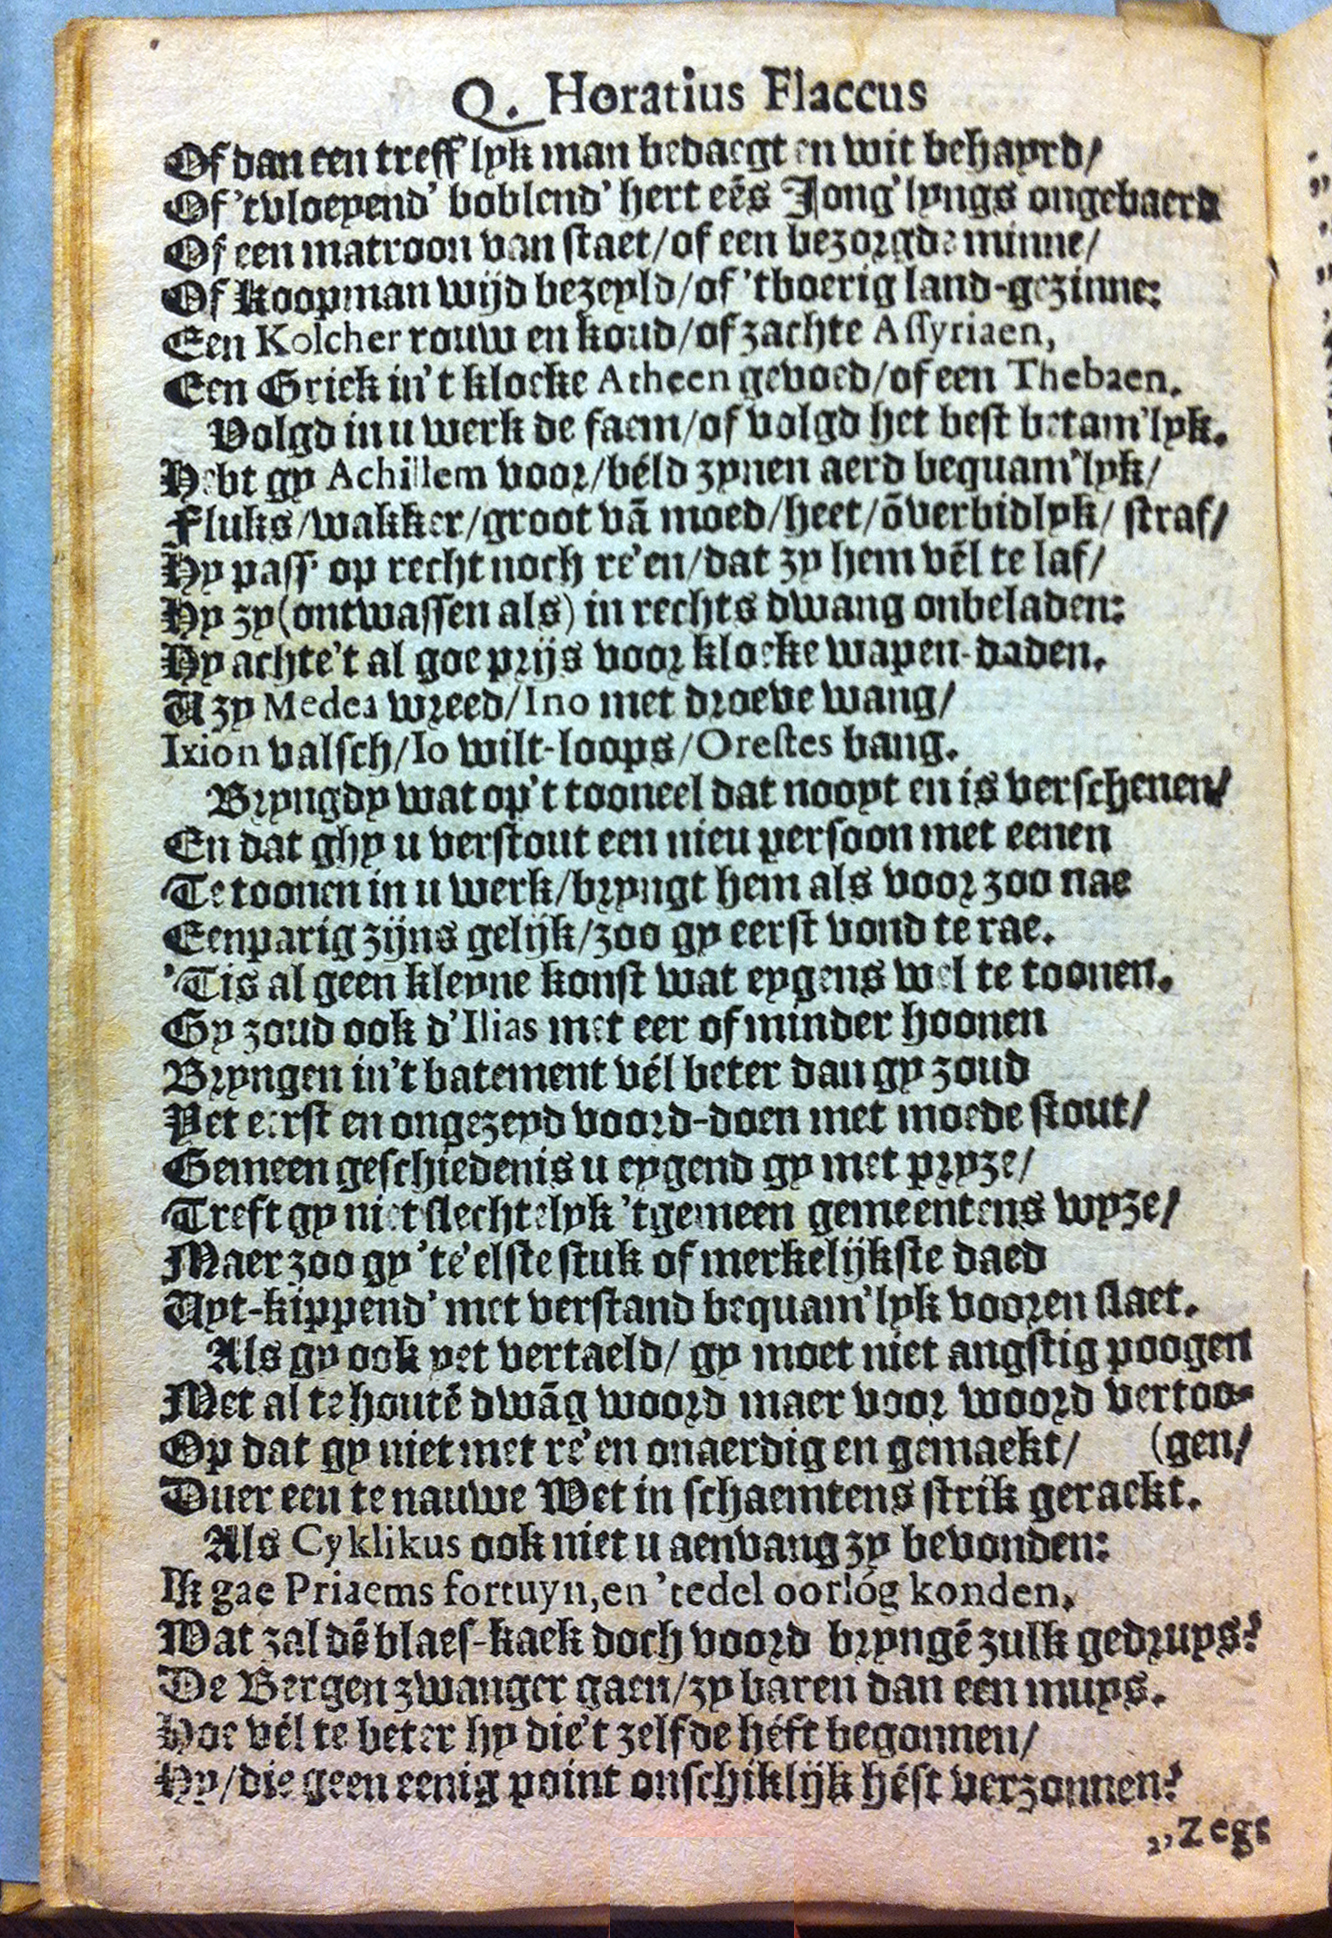 Q. Horatius Flaccus
Of dan een treff'lyk man bedaegt en wit behayrd/
Of 'tvloeyend' boblend' hert eẽs Jong'lyngs ongebaerd
Of een matroon van staet/of een bezorgde minne/
Of koopman wijd bezeyld/of 'tboerig land-gezinne:
Een Kolcher rouw en koud/of zachte Assyriaen,
Een Griek in't kloeke Atheen gevoed/of een Thebaen.
Volgd in u werk de faem/of volgd het best betam'lyk.
Hebt gy Achillem voor/béld zynen aerd bequam'lyk/
Fluks/wakker/groot vã moed/heet/õverbidlyk/ straf/
Hy pass' op recht noch ré'en/dat zy hem vél te laf/
Hy zy (ontwassen als) in rechts dwang onbeladen:
Hy achte't al goe prijs voor kloeke wapen-daden.
U zy Medea wreed/Ino met droeve wang/
Ixion valsch/Io wilt-loops/Orestes bang.
Bryngdy wat op't tooneel dat nooyt en is verschenen/
En dat ghy u verstout een nieu persoon met eenen
Te toonen in u werk/bryngt hem als voor zoo nae
Eenparig zijns gelijk/zoo gy eerst vond te rae.
'Tis al geen kleyne konst wat eygens wel te toonen.
Gy zoud ook d'Ilias met eer of minder hoonen
Bryngen in't batement vél beter dan gy zoud
Yet eerst en ongezeyd voord-doen met moede stout/
Gemeen geschiedenis u eygend gy met pryze/
Treft gy niet slechtelyk 'tgemeen gemeentens wyze/
Maer zoo gy 'té'elste stuk of merkelijkste daed
Uyt-kippend' met verstand bequam'lyk vooren slaet.
Als gy ook yet vertaeld/ gy moet niet angstig poogen
Met al te houtẽ dwãg woord maer voor woord vertoo-
Op dat gy niet met ré'en onaerdig en gemaekt/ (gen/
Duer een te nauwe Wet in schaemtens strik geraekt.
Als Cyklikus ook niet u aenvang zy bevonden:
Ik gae Priaems fortuyn, en 'tedel oorlóg konden,
Wat zal dẽ blaes-kaek doch voord bryngẽ zulk gedruys?
De Bergen zwanger gaen/zy baren dan een muys.
Hoe vél te beter hy die't zelfde héft begonnen/
Hy/die geen eenig point onschiklijk héft verzonnen?
,,Zegt